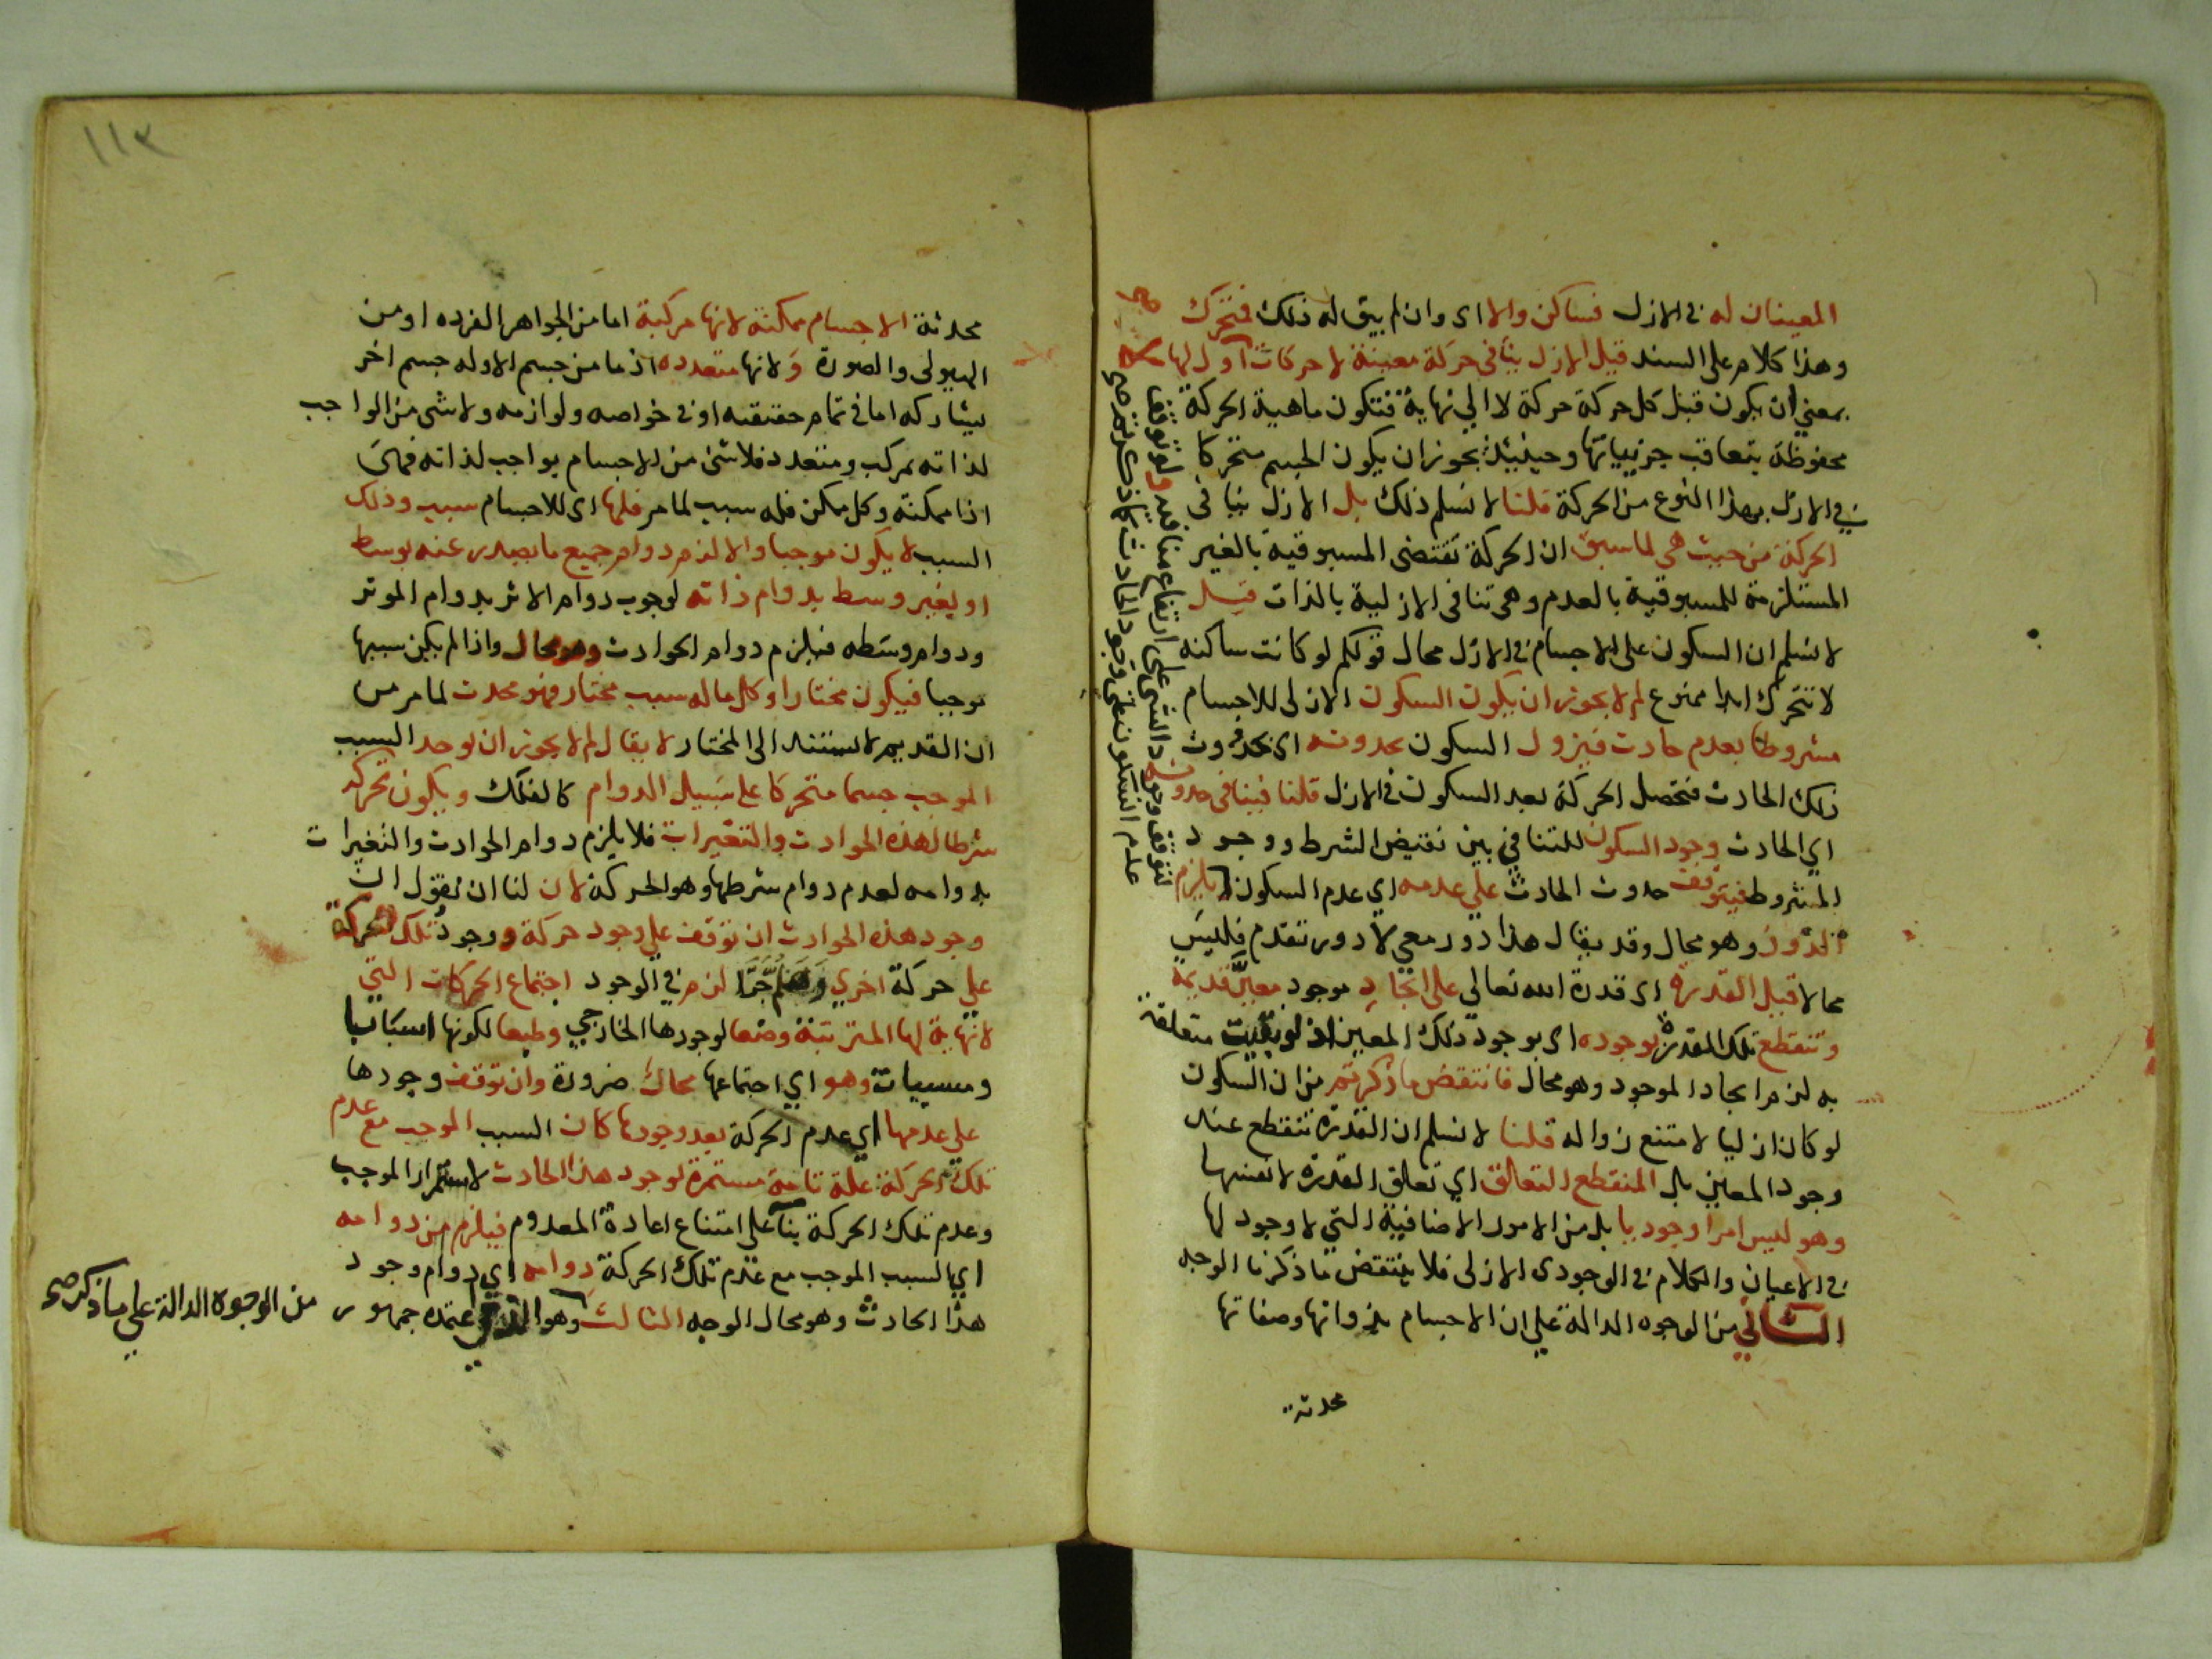 المعينان له في الازل فساكن والا اى وان لم يبق له ذلك فمتحرك
وهذا كلام على السند قيل الازل ينافى حركة معينة لا حركات لا اول لها
بمعني ان يكون قبل كل حركة حركة لا الي نهاية فتكون ماهية الحركة
محفوظة بتعاقب جزيياتها وحينيذ يجوز ان يكون الجسم متحركا
في الازل بهذا النوع من الحركة قلنا لا نسلم ذلك بل الازل ينافى
الحركة من حيث هي لما سبق ان الحركة تقتضى المسبوقية بالغير
المستلزمة للمسبوقية بالعدم وهى تنافى الازلية بالذات قيل
لا نسلم ان السكون على الاجسام في الازل محال قولكم لو كانت ساكنه
لا تتحرك ابدا ممنوع لم لا يجوز ان يكون السكون الازلى للاجسام
مشروطا بعدم حادث فيزول السكون بحدوثه اى بحدوث
ذلك الحادث فتحصل الحركة بعد السكون في الازل قلنا فينافى حدوثه
اي الحادث وجود السكون للتنافي بين نقيض الشرط ووجود
المشروط فيتوقف حدوث الحادث علي عدمه اي عدم السكون ويلزم
الدور وهو محال وقد يقال هذا دور معي لا دور تقدم فليس
محالا قيل القدرة اى قدرة الله تعالي على ايجاد موجود معين قديمة
وتنقطع تلك القدرة بوجوده اى بوجود ذلك المعين اذ لو بقيت متعلقة
به لزم ايجاد الموجود وهو محال فانتقض ما ذكرتم من ان السكون
لو كان ازليا لامتنع زواله قلنا لا نسلم ان القدرة تنقطع عند
وجود المعين بل المنقطع التعلق اي تعلق القدرة لا نفسها
وهو ليس امرا وجوديا بل من الامور الاضافية التي لا وجود لها
في الاعيان والكلام في الوجودى الازلى فلا ينتقض ما ذكرنا الوجه
الثاني من الوجوه الدالة علي ان الاجسام بذواتها وصفاتها
محدثة
لتوقف وجود الشى على ارتفاع منافيه ولو توقف
عدم السكون على وجود الحادث كما ذكرتم صح
١١٣
محدثة الاجسام ممكنة لانها مركبة اما من الجواهر الفرده او من
الهيولى والصورة ولانها متعدده اذ ما من جسم الا وله جسم اخر
يشاركه اما في تمام حقيقته او في خواصه ولوازمه ولا شى من الواجب
لذاته بمركب ومتعدد فلا شئ من الاجسام بواجب لذاته فهي
اذا ممكنة وكل ممكن فله سبب لما مر فلها اى للاجسام سبب وذلك
السبب لا يكون موجبا والا لزم دوام جميع ما يصدر عنه بوسط
او بغير وسط بدوام ذاته لوجوب دوام الاثر بدوام الموثر
ودوام وسطه فيلزم دوام الحوادث وهو محال واذا لم يكن سببها
موجبا فيكون مختارا وكل ما له سبب مختار فهو محدث لما مر من
ان القديم لا يستند الى المختار لا يقال لم لا يجوز ان يوجد السبب
الموجب جسما متحركا على سبيل الدوام كالفلك ويكون تحركه
شرطا لهذه الحوادث والتغيرات فلا يلزم دوام الحوادث والتغيرات
بدوامه لعدم دوام شرطها وهو الحركة لان لنا ان نقول ان
وجود هذه الحوادث ان توقف علي وجود حركة ووجود تلك الحركة
علي حركة اخري وهلم جرا لزم في الوجود اجتماع الحركات التي
لا نهاية لها المترتبة وضعا لوجودها الخارجي وطبعا لكونها اسبابا
ومسببات وهو اي اجتماعها محال ضرورة وان توقف وجودها
على عدمها اي عدم الحركة بعد وجودها كان السبب الموجب مع عدم
تلك الحركة علة تامة مستمرة لوجود هذا الحادث لاستمرار الموجب
وعدم تلك الحركة بنا على امتناع اعادة المعدوم فيلزم من دوامه
اي السبب الموجب مع عدم تلك الحركة دوامه اي دوام وجود
هذا الحادث وهو محال الوجه الثالث وهو الذي اعتمده جمهور
من الوجوه الدالة علي ما ذكر صح